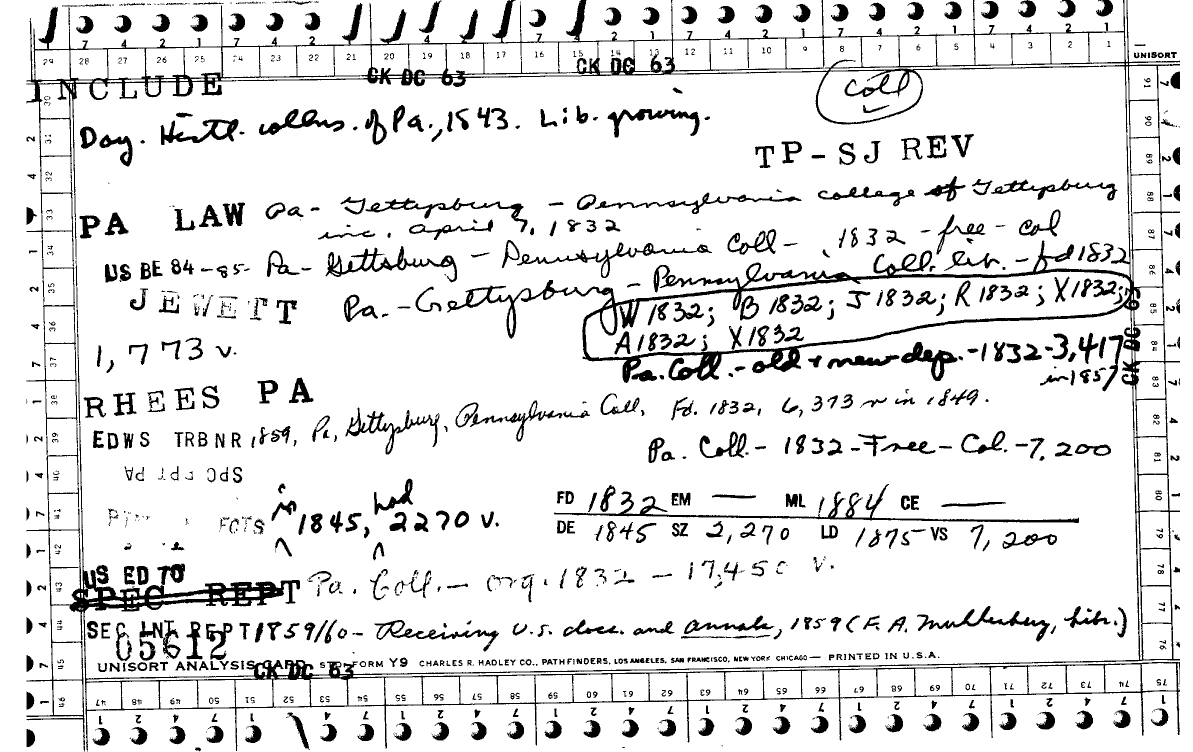 29 28 27 26 25 24 23 22 21 20 19 18 17 16 15 14 13 12 11 10 9 8 7 6 5 4 3 2 1 UNISORT
CK DC 63 CK DC 63
INCLUDE
coll
Day. Histl. collns. of Pa., 1843. Lib. growing.
TP-SJ REV
PA LAW Pa- Gettysburg - Pennsylvania college of Gettysburg
inc. April 7, 1832
US BE 84-85- Pa- Gettsburg - Pennsylvania Coll- 1832 - free - col
JEWETT Pa.-Gettysburg- Pennsylvania Coll. lib. - fd 1832
W 1832; B 1832; J 1832; R 1832; X1832;
A 1832; X1832
1,773 v.
Pa. Coll.- old + new dep.-1832-3,417
in 1857
CK DC 63
RHEES PA
EDWS TRBNR 1859, Pa, Gettysburg, Pennsylvania Coll, Fd. 1832, 6,373 v in 1849.
Pa. Coll.- 1832-Free-Col.-7,200
SPC RPT PA
FCTS in 1845, had 2270 v.
FD 1832 EM — ML 1884 CE —
DE 1845 SZ 2,270 LD 1875 VS 7,200
US ED 70
SPEC REPT Pa. Coll.- org. 1832 - 17,450 v.
SEC INT REPT 1859/60- Receiving U.S. docs. and annals, 1859 (F. A. Muhlenberg, Libr.)
05612
UNISORT ANALYSIS CARD FORM Y9 CHARLES R. HADLEY CO., PATHFINDERS, LOS ANGELES, SAN FRANCISCO, NEW YORK CHICAGO— PRINTED IN U.S.A.
CK DC 63
47 48 49 50 51 52 53 54 55 56 57 58 59 60 61 62 63 64 65 66 67 68 69 70 71 72 73 74 75